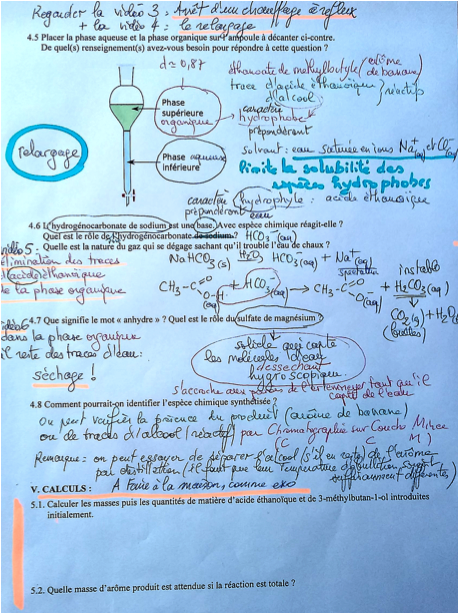 Regarder la vidéo 3 : Arrêt d'un chauffage à reflux
+ la vidéo 4 : le relargage
4.5 Placer la phase aqueuse et la phase organique sur l'ampoule à décanter ci-contre.
De quel(s) renseignement(s) avez-vous besoin pour répondre à cette question ?
d ≈ 0,87
éthanoate de méthylbutyle (arôme de banane)
trace d'acide éthanoïque } réactif
d'alcool
Phase
supérieure
organique
caractère
hydrophobe
prépondérant
relargage
solvant : eau saturée en ions Na+(aq) et Cl-(aq)
Phase aqueuse
inférieure
limite la solubilité des
espèces hydrophobes
caractère hydrophyle : acide éthanoïque
prépondérant eau
4.6 L'hydrogénocarbonate de sodium est une base. Avec espèce chimique réagit-elle ?
Quel est le rôle de l'hydrogénocarbonate de sodium ? HCO3-(aq)
vidéo 5 : Quelle est la nature du gaz qui se dégage sachant qu'il trouble l'eau de chaux ?
élimination des traces
d'acide éthanoïque
de la phase organique
NaHCO3(s) H2O → HCO3-(aq) + Na+(aq)
spectateur
instable
CH3-C=O O-H + HCO3-(aq) → CH3-C=O O-(aq) + H2CO3(aq)
CO2(g) + H2O
(bulles)
vidéo 6 4.7 Que signifie le mot « anhydre » ? Quel est le rôle du sulfate de magnésium ?
dans la phase organique
il reste des traces d'eau :
séchage !
solide qui capte
les molécules d'eau
dessechant
hygroscopique.
s'accroche aux parois de l'erlenmeyer tant qu'il
capte de l'eau
4.8 Comment pourrait-on identifier l'espèce chimique synthétisée ?
On peut vérifier la présence du produit (arôme de banane)
ou de traces d'alcool (réactif) par Chromatographie sur Couche Mince
(C C M)
Remarque : on peut essayer de séparer l'alcool (s'il en reste) de l'arôme
par distillation (il faut que leur température d'ébullition soyent
suffisamment différentes)
V. CALCULS : A faire à la maison, comme exo
5.1. Calculer les masses puis les quantités de matière d'acide éthanoïque et de 3-méthylbutan-1-ol introduites
initialement.
5.2. Quelle masse d'arôme produit est attendue si la réaction est totale ?